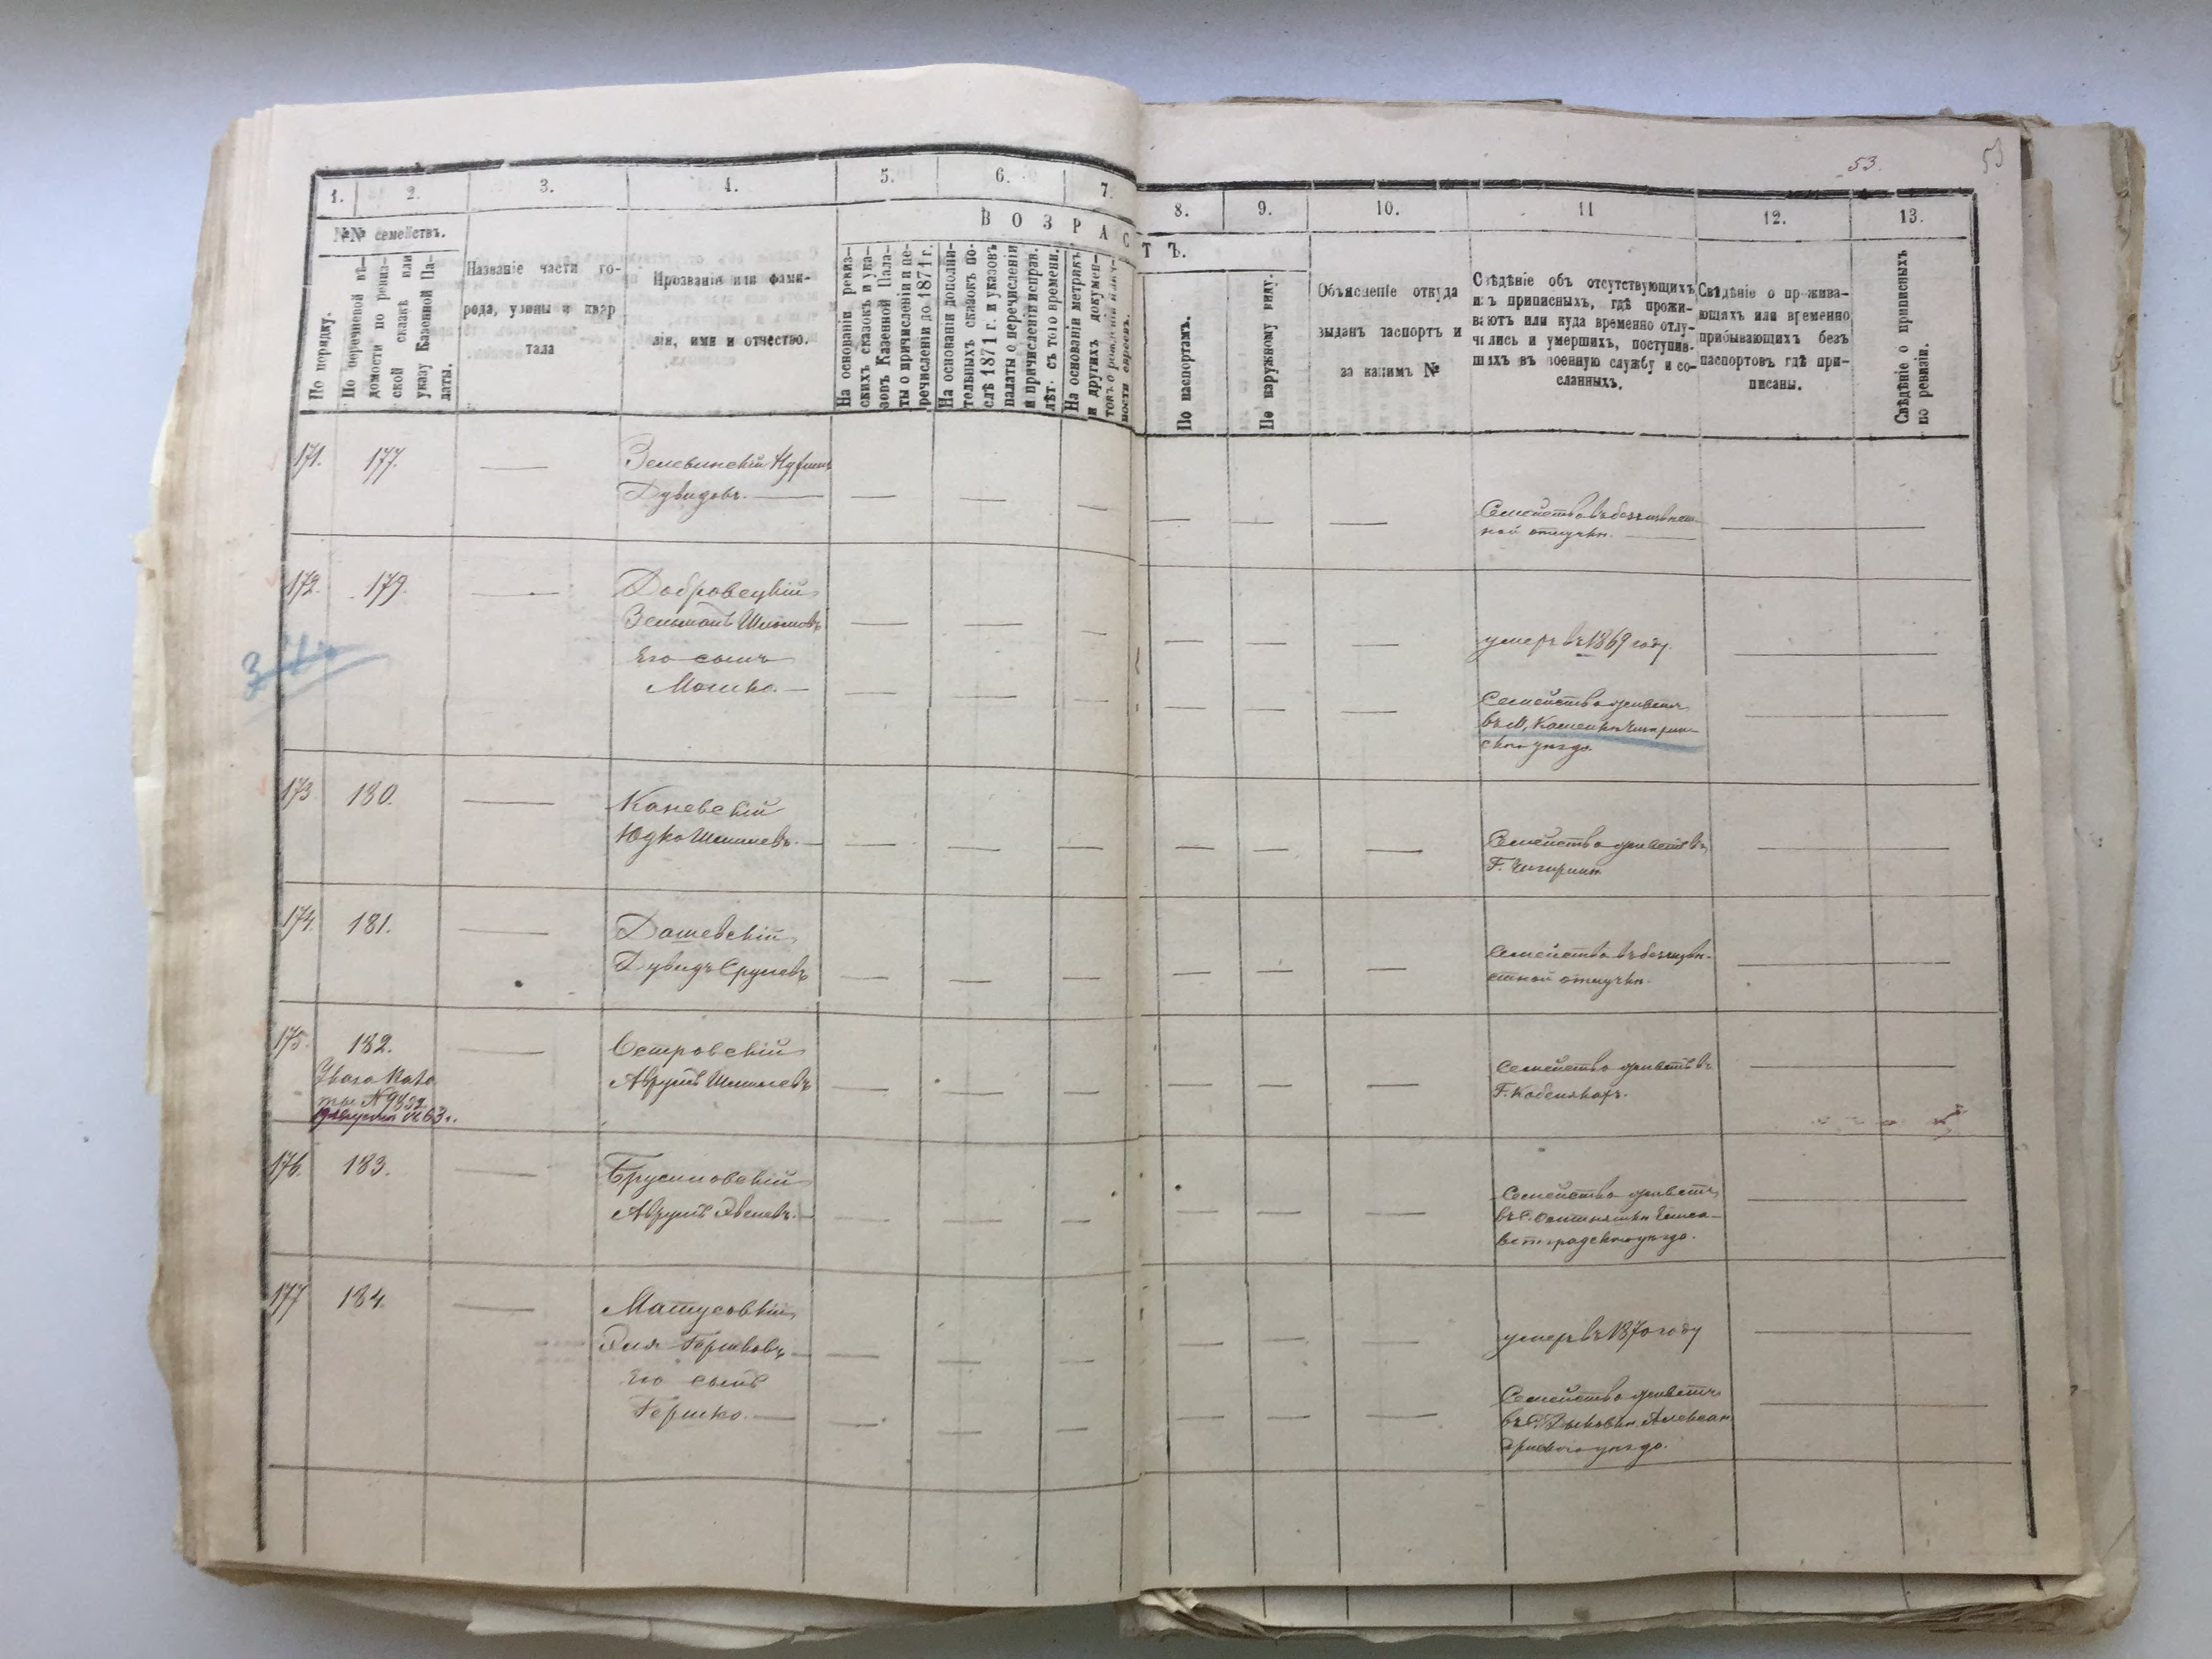 53.
53
1. 2. 3. 4. 5. 6. 7. 8. 9. 10. 11 12. 13.
№№ семействъ.
ВОЗРАСТЪ.
По порядку.
По перечневой вѣ-
домости по ревиз-
ской сказкѣ или
указу Казенной Па-
латы.
Названіе части го-
рода, улицы и квар
тала
Прозваніе или фами-
лія, имя и отчество.
На основаніи ревиз-
скихъ сказокъ и ука-
зовъ Казенной Пала-
ты о причисленіи и пе-
речисленіи до 1871 г.
На основаніи дополни-
тельныхъ сказокъ по-
слѣ 1871 г. и указовъ
палаты о перечисленіи
и причисленіи исправ.
лѣт. съ того времени.
На основаніи метрикъ
и другихъ докумен-
товъ о рожденіи
По паспортамъ.
По наружному виду.
Объясненіе откуда
выданъ паспортъ и
за какимъ №
Свѣдѣніе объ отсутствующихъ
изъ приписныхъ, гдѣ прожи-
ваютъ или куда временно отлу-
чились и умершихъ, поступив-
шихъ въ военную службу и со-
сланныхъ.
Свѣдѣніе о прожива-
ющихъ или временно
прибывающихъ безъ
паспортовъ гдѣ при-
писаны.
Свѣдѣніе о приписныхъ
по ревизіи.
171. 177. Зелевинскій
Дувидовъ.
Семейство въ безъизвѣст
ной отлучкѣ.
172. 179. Добровецкій
Зельманъ Шлiомовъ
умеръ въ 1869 году.
Его сынъ
Мошко.
Семейство живетъ
въ М. Каменкѣ Чигрин-
скаго уѣзда.
173 180. Каневскій
Юдко Шмилевъ.
Семейство живетъ въ
Г. Чигиринѣ
174. 181. Дашевскій
Дувидъ Срулевъ
Семейство въ безъизвѣ-
стной отлучкѣ.
175. 182. Островскій
Аврумъ Шмилевъ
Семейство живетъ въ
Г. Кобелякахъ.
Указъ Пала
ты № 9822
176. 183. Брусиловскій
Аврумъ
Семейство живетъ
въ С. Елиса-
ветградскаго уѣзда.
177 184. Матусовкій
Эля Гершковъ
умеръ въ 1870 году
Его сынъ
Гершко.
Семейство живетъ
въ С. Алексан
дрійскаго уѣзда.